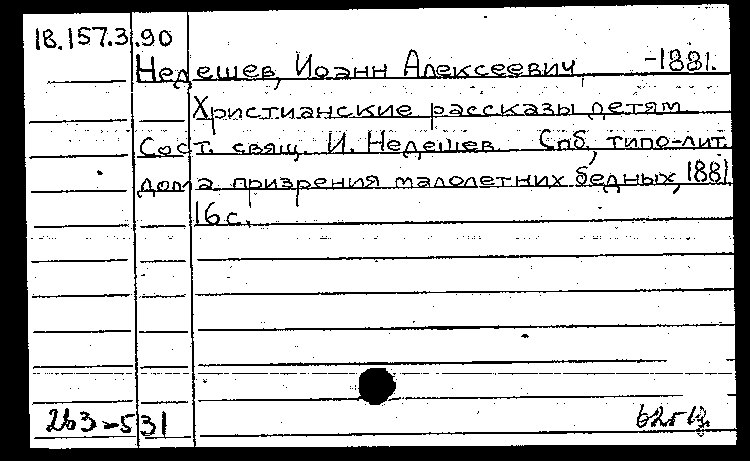 18.157.3.90
Недешев, Иоанн Алексеевич, -1881.
Христианские рассказы детям.
Сост. свящ. И. Недешев. Спб, типо-лит.
дома призрения малолетних бедных, 1881
16 с.
263-531